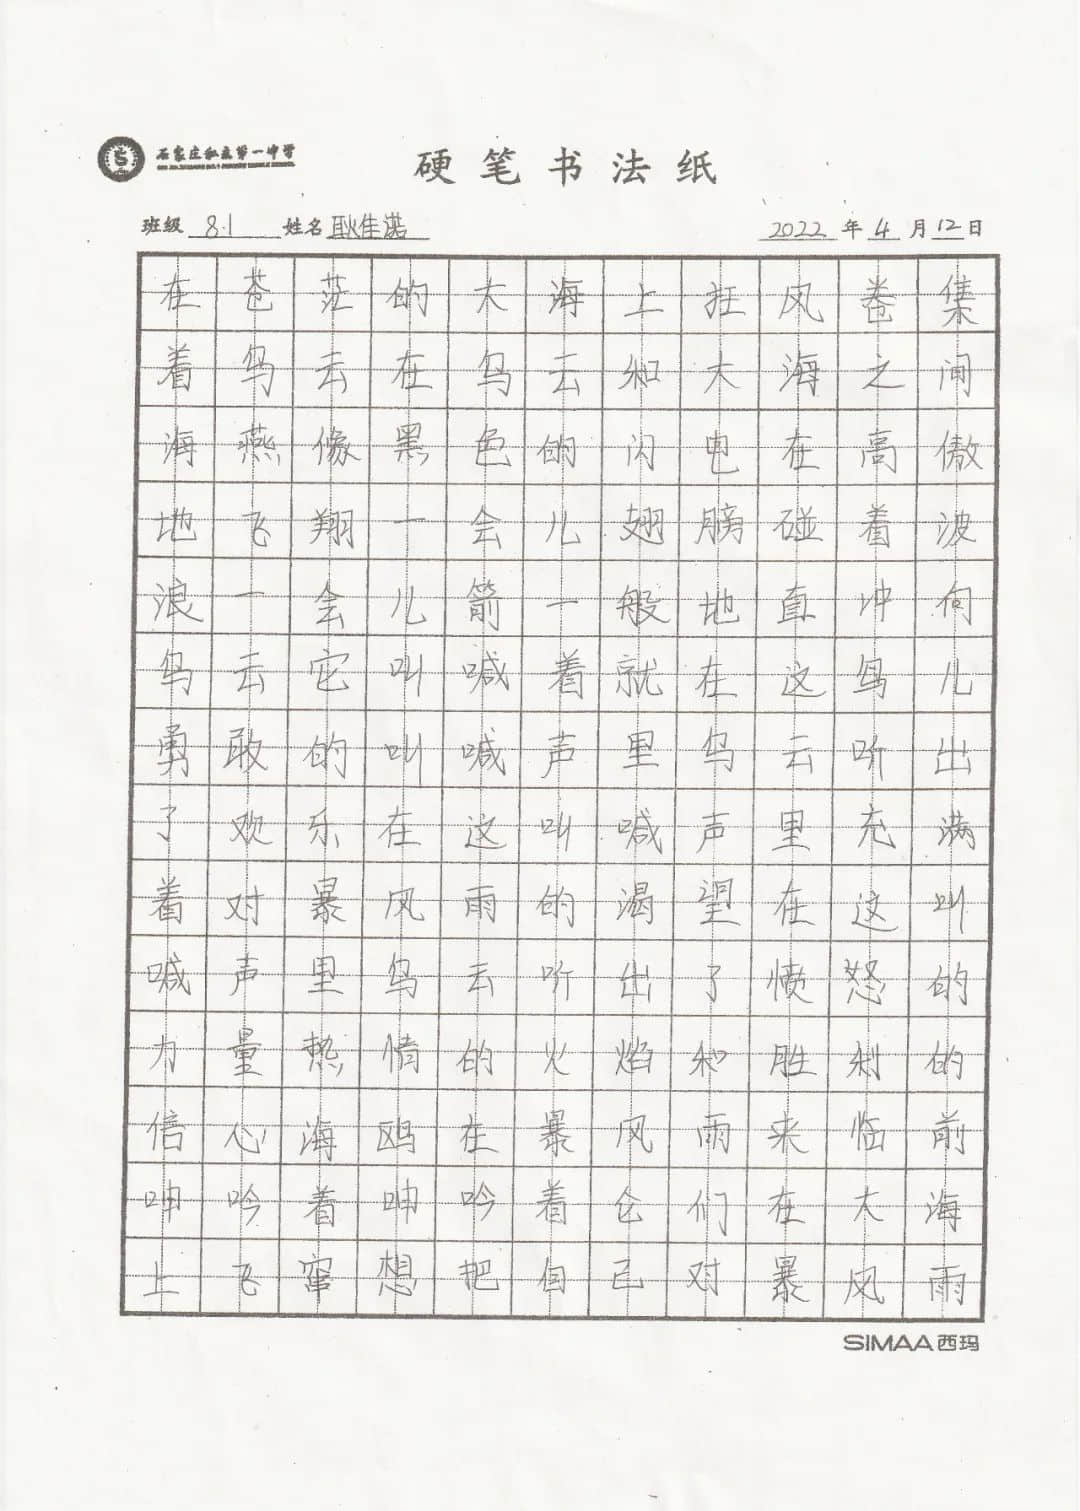 石家庄私立第一中学
硬笔书法纸
班级 8.1 姓名 耿佳诺 2022 年 4 月 12 日
在苍茫的大海上狂风卷集
着鸟云在鸟云和大海之间
海燕像黑色的闪电在高傲
地飞翔一会儿翅膀碰着波
浪一会儿箭一般地直冲向
鸟云它叫喊着就在这鸟儿
勇敢的叫喊声里鸟云听出
了欢乐在这叫喊声里充满
着对暴风雨的渴望在这叫
喊声里鸟云听出了愤怒的
力量热情的火焰和胜利的
信心海鸥在暴风雨来临前
呻吟着呻吟着仑们在大海
上飞窜想把自己对暴风雨
SIMAA西玛